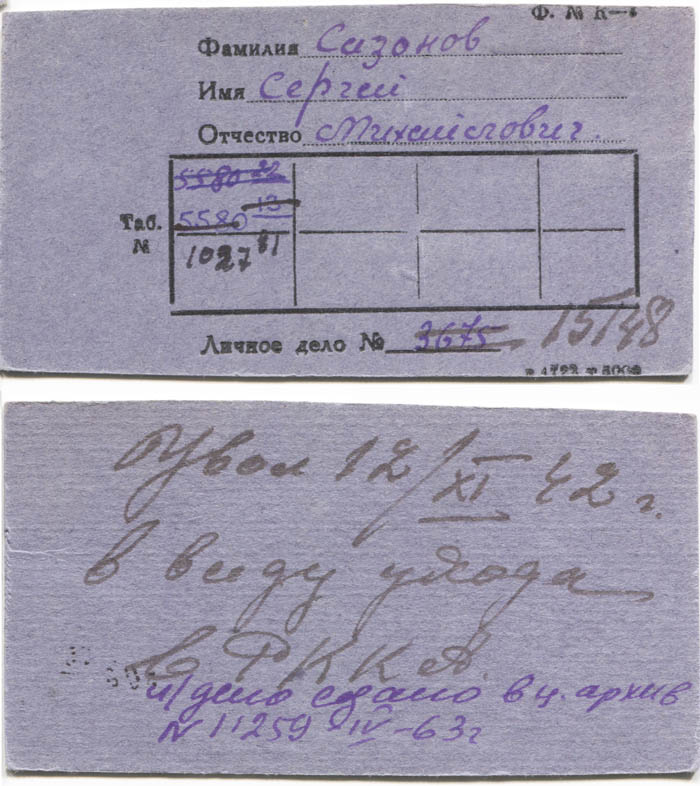 Ф. № К—
Фамилия Сазонов
Имя Сергей
Отчество Михайлович.
5580 22
5580 13
Таб. № 1027 81
Личное дело № 3675 15148
Увол 12/XI 42 г.
в виду ухода
в РККА.
л/дело сдано в ц. архив
N 11259 IV-63 г